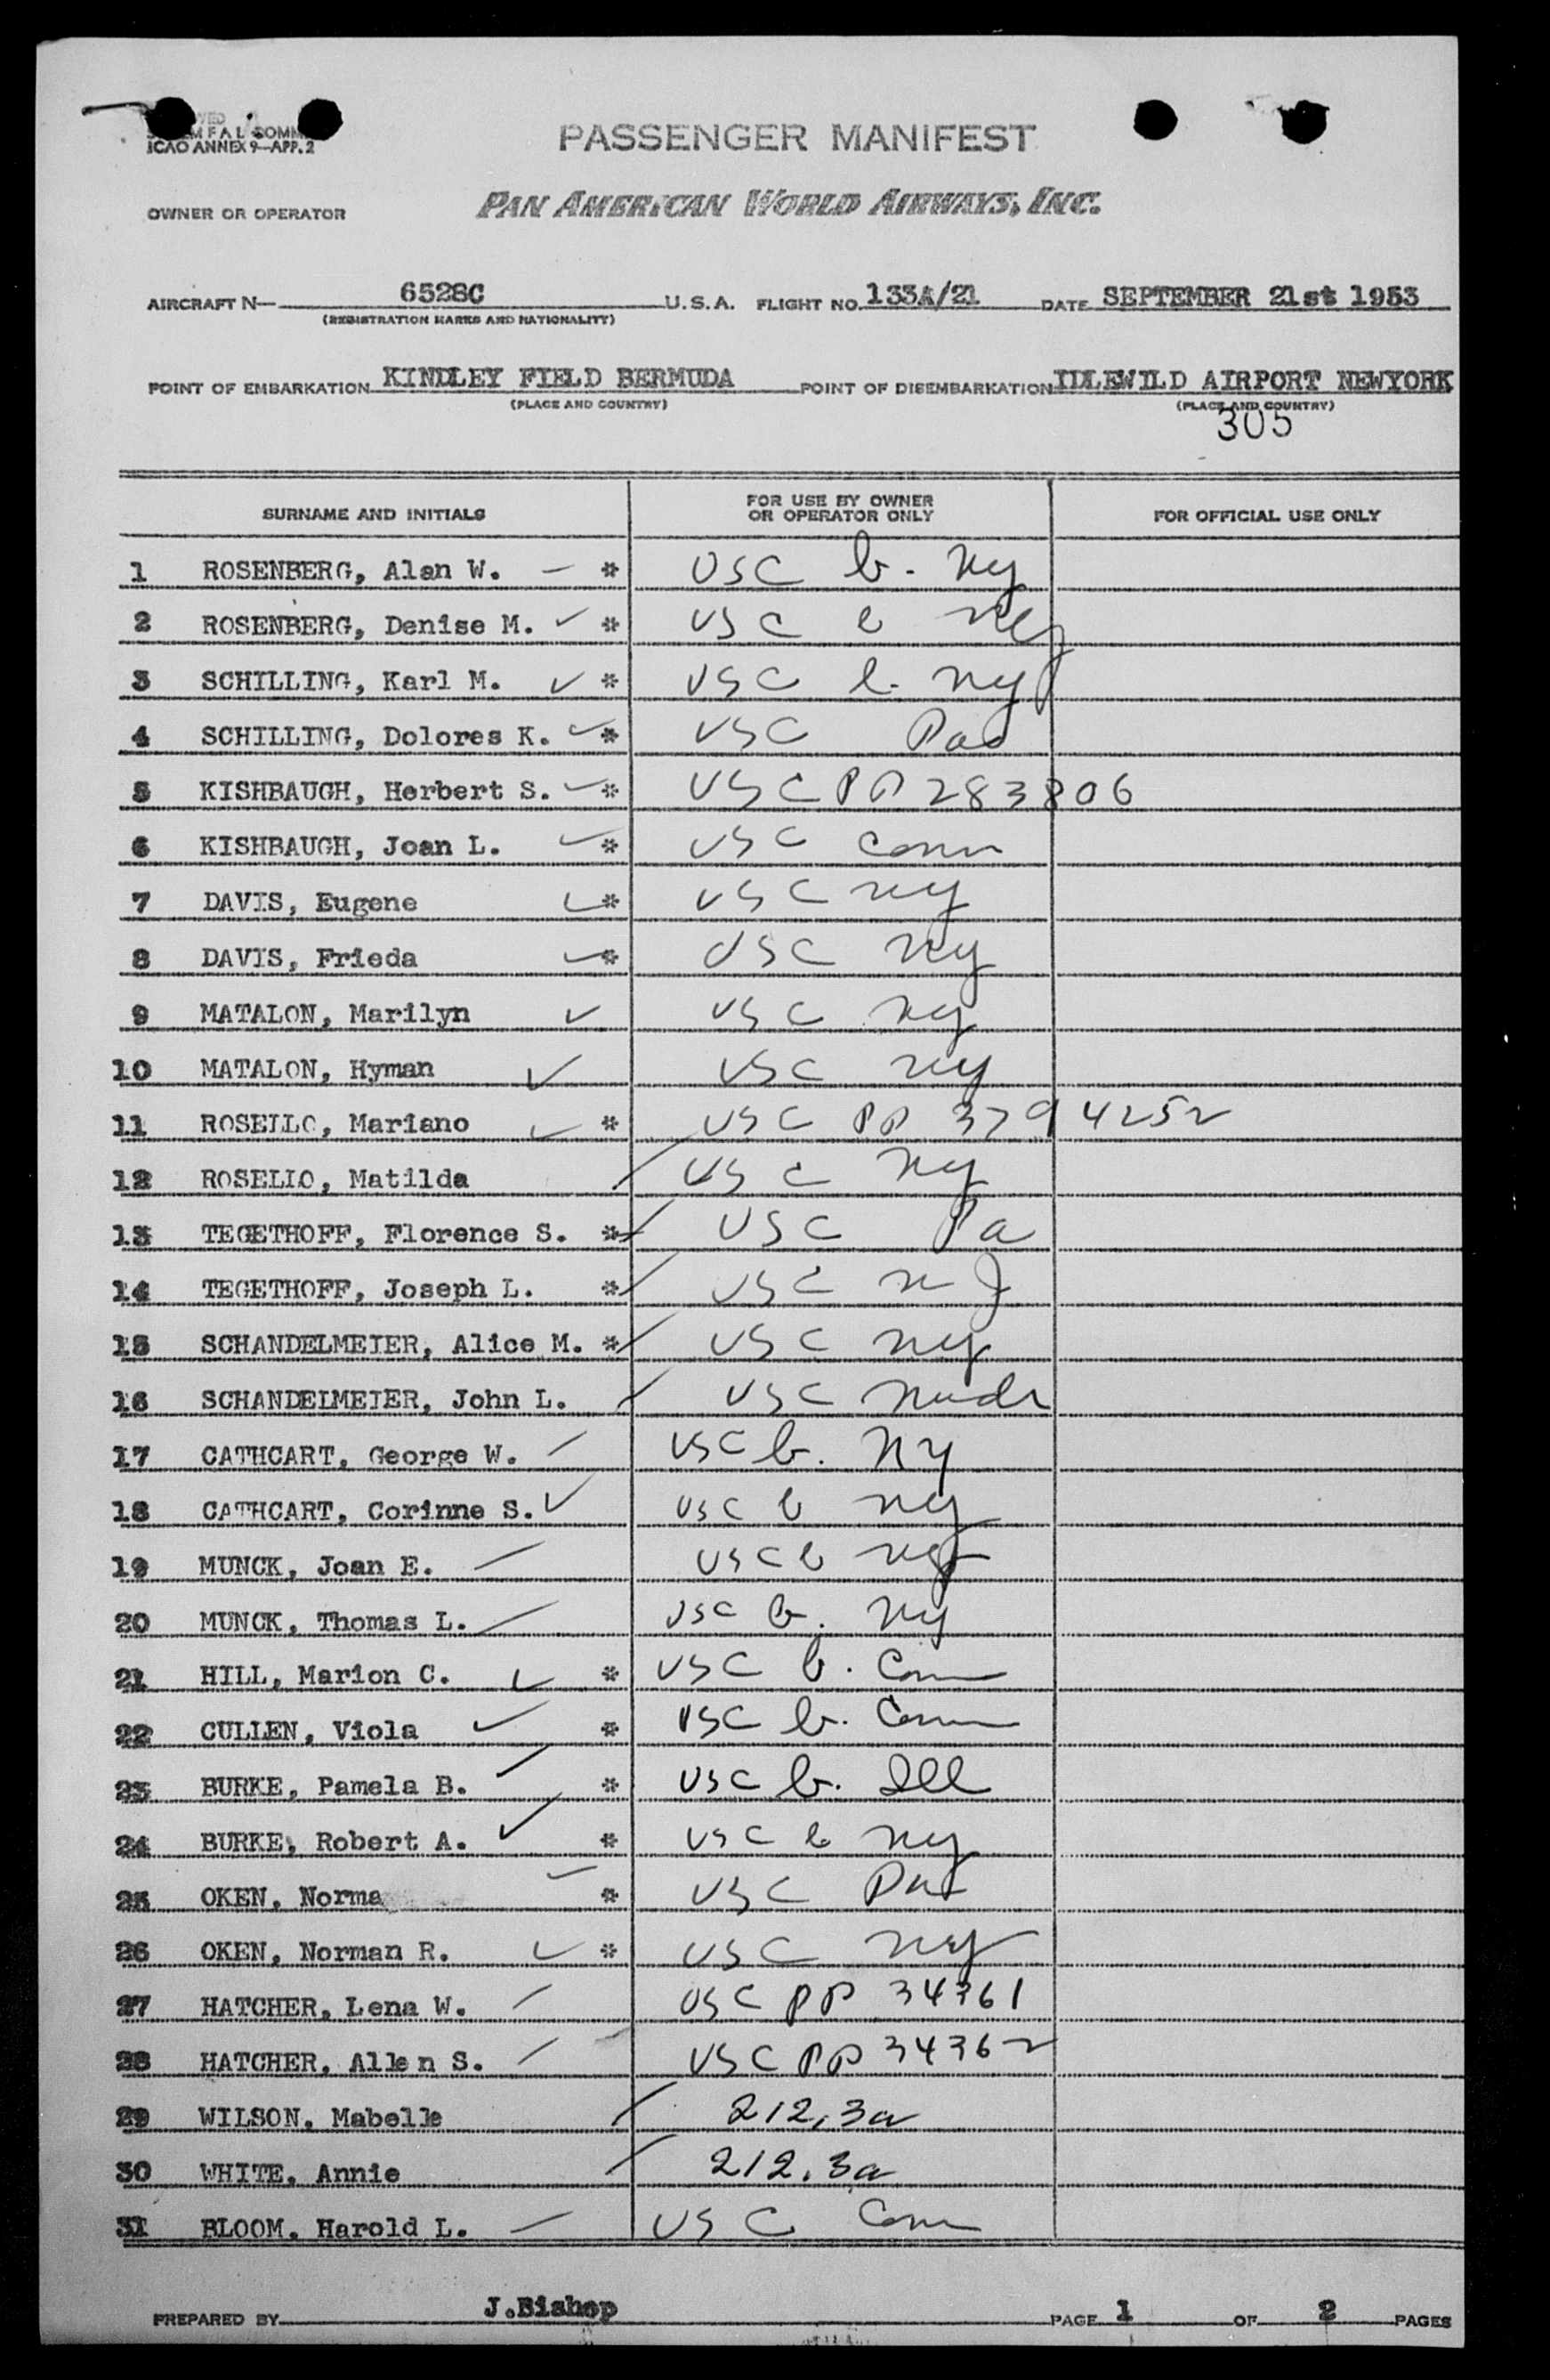 ICAO ANNEX 9—APP. 2
PASSENGER MANIFEST
OWNER OR OPERATOR PAN AMERICAN WORLD AIRWAYS, INC.
AIRCRAFT N— 6528C U.S.A. FLIGHT NO. 133A/21 DATE SEPTEMBER 21st 1953
(REGISTRATION MARKS AND NATIONALITY)
POINT OF EMBARKATION KINDLEY FIELD BERMUDA POINT OF DISEMBARKATION IDLEWILD AIRPORT NEWYORK
(PLACE AND COUNTRY) (PLACE AND COUNTRY)
305
SURNAME AND INITIALS FOR USE BY OWNER OR OPERATOR ONLY FOR OFFICIAL USE ONLY
1 ROSENBERG, Alan W. — * USC b. NY
2 ROSENBERG, Denise M. ✓ * USC b NY
3 SCHILLING, Karl M. ✓ * USC b. NY
4 SCHILLING, Dolores K. ✓ * USC Pa
5 KISHBAUGH, Herbert S. ✓ * USC PP 283806
6 KISHBAUGH, Joan L. ✓ * USC Conn
7 DAVIS, Eugene ✓ * USC NY
8 DAVIS, Frieda ✓ * USC NY
9 MATALON, Marilyn ✓ USC NY
10 MATALON, Hyman ✓ USC NY
11 ROSELLO, Mariano ✓ * USC PP 3794252
12 ROSELLO, Matilda / USC NY
13 TEGETHOFF, Florence S. * / USC Pa
14 TEGETHOFF, Joseph L. * / USC NJ
15 SCHANDELMEIER, Alice M. * / USC NY
16 SCHANDELMEIER, John L. / USC
17 CATHCART, George W. / USC b. NY
18 CATHCART, Corinne S. ✓ USC b NY
19 MUNCK, Joan E. / USC b NY
20 MUNCK, Thomas L. / USC b. NY
21 HILL, Marion C. ✓ * USC b. Conn
22 CULLEN, Viola ✓ * USC b. Conn
23 BURKE, Pamela B. / * USC b. Ill
24 BURKE, Robert A. ✓ * USC b NY
25 OKEN, Norma — * USC Pa
26 OKEN, Norman R. ✓ * USC NY
27 HATCHER, Lena W. / USC PP 34361
28 HATCHER, Allen S. / USC PP 34362
29 WILSON, Mabelle / 212.3a
30 WHITE, Annie / 212.3a
31 BLOOM, Harold L. — USC Conn
PREPARED BY J.Bishop PAGE 1 OF 2 PAGES